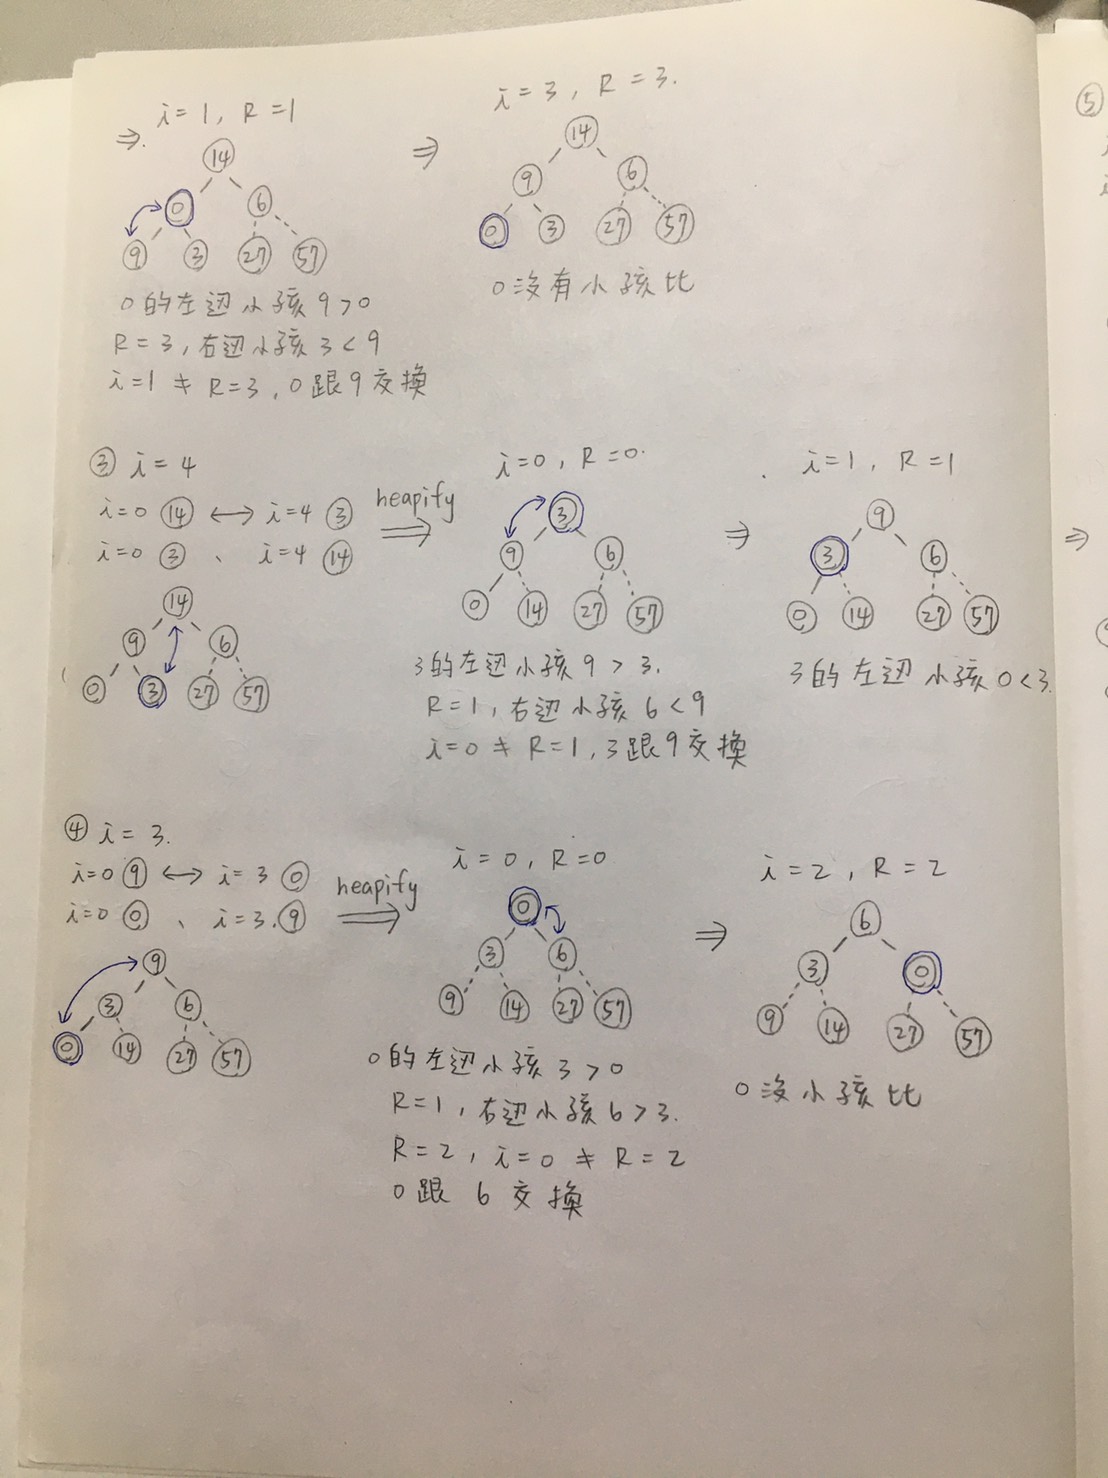 ⇒ i=1, R=1
14
0 6
9 3 27 57
0的左边小孩9>0
R=3,右边小孩3<9
i=1≠R=3,0跟9交換
⇒ i=3, R=3.
14
9 6
0 3 27 57
0沒有小孩比
③ i=4
i=0 ⑭ ↔ i=4 ③
i=0 ③、i=4 ⑭
14
9 6
0 3 27 57
heapify
⇒
i=0, R=0.
3
9 6
0 14 27 57
3的左边小孩9>3.
R=1,右边小孩6<9
i=0≠R=1,3跟9交換
⇒
i=1, R=1
9
3 6
0 14 27 57
3的左边小孩0<3.
⇒
④ i=3.
i=0 ⑨ ↔ i=3 ⓪
i=0 ⓪、i=3.⑨
9
3 6
0 14 27 57
heapify
⇒
i=0, R=0
0
3 6
9 14 27 57
0的左边小孩3>0
R=1,右边小孩6>3.
R=2,i=0≠R=2
0跟6交換
⇒
i=2, R=2
6
3 0
9 14 27 57
0沒小孩比
⑤